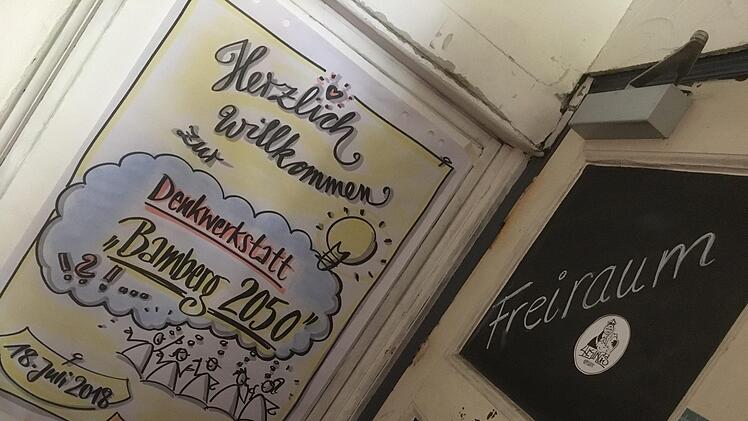 Herzlich
Willkommen
zur
Denkwerkstatt
„Bamberg 2050"
!?!!...
18. Juli 2018
Freiraum